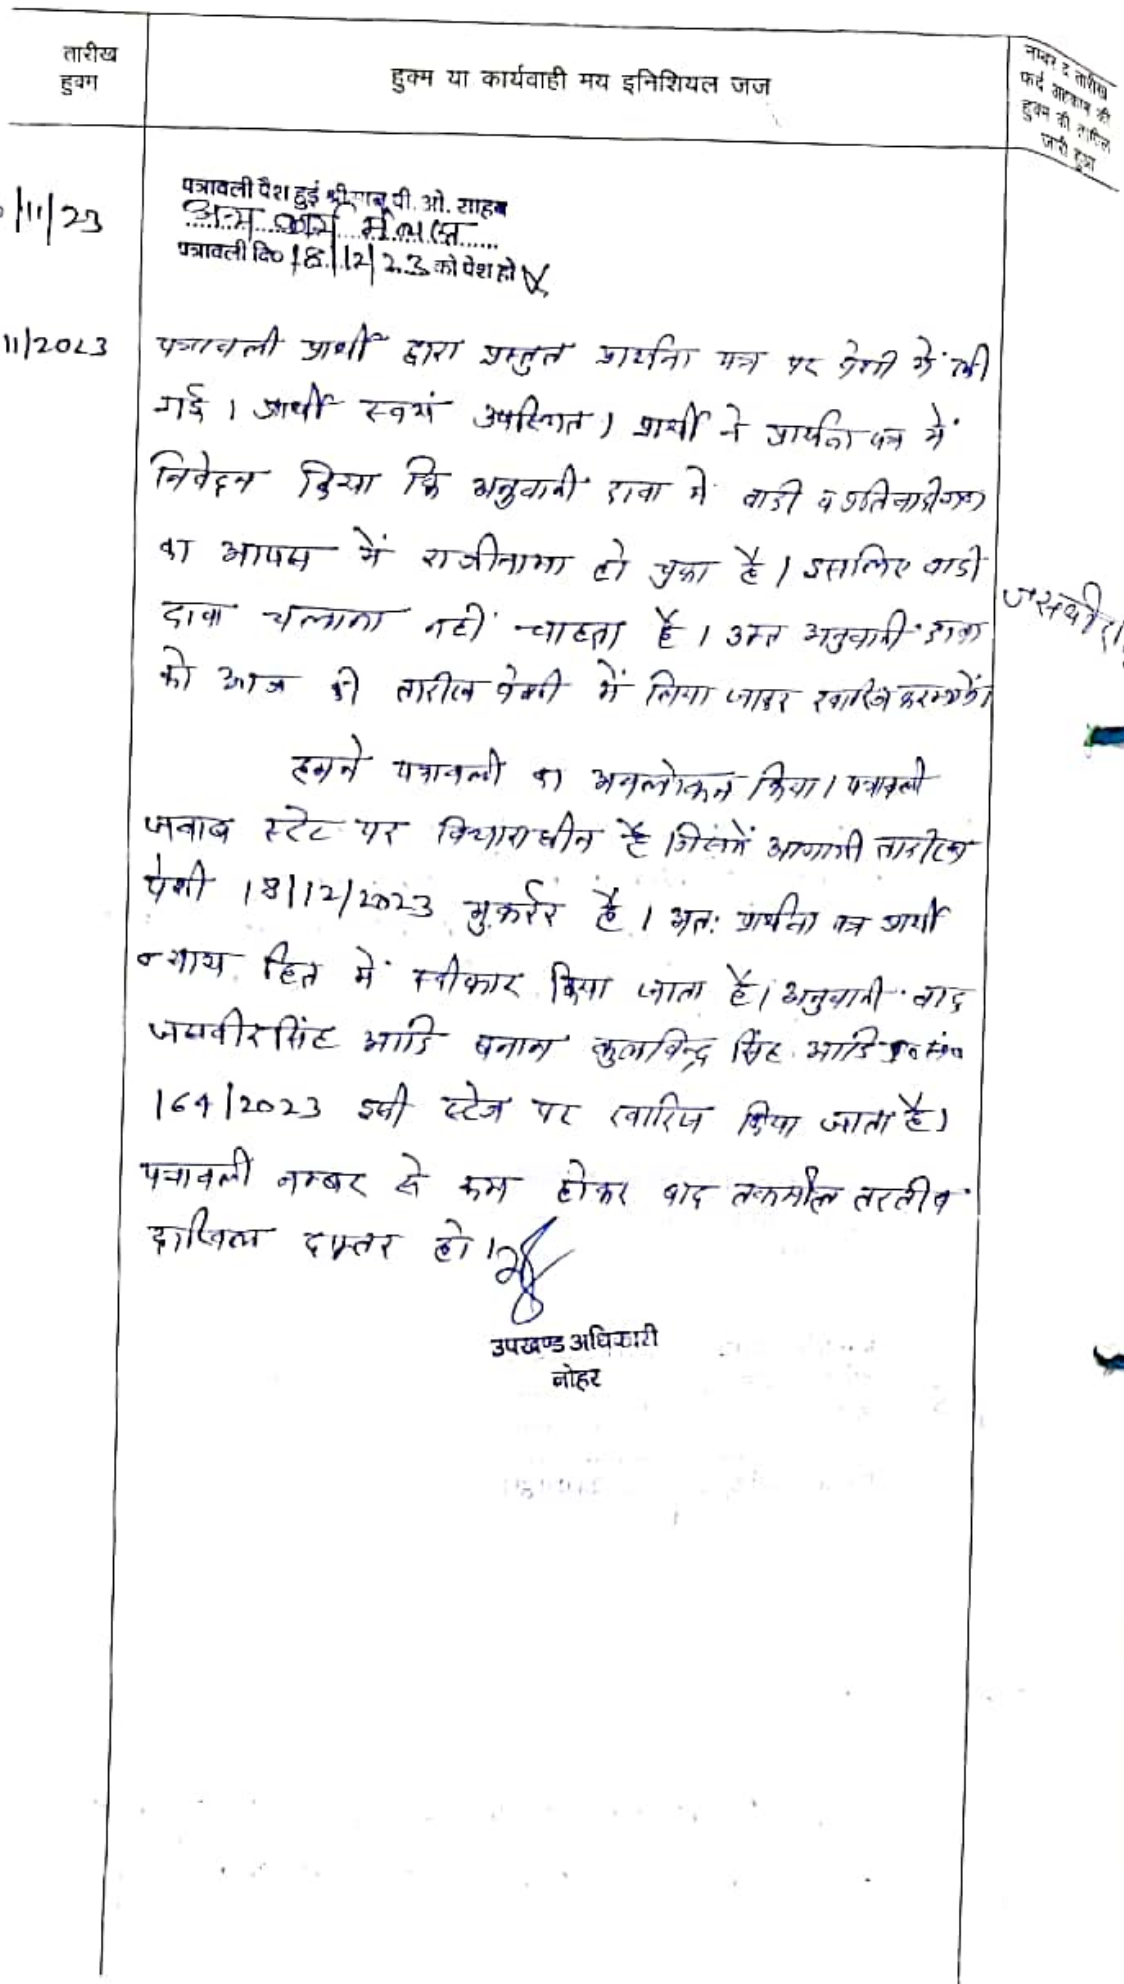 तारीख
हुक्म
हुक्म या कार्यवाही मय इनिशियल जज
नम्बर व तारीख
फर्द अहकाम की
हुक्म की तामिल
जारी हुआ
/11/23
पत्रावली पेश हुई श्रीमान् पी. ओ. साहब
अन्य कार्य में व्यस्त
पत्रावली दि० 18/12/23 को पेश हो
11/2023
पत्रावली प्रार्थी द्वारा प्रस्तुत प्रार्थना पत्र पर पेशी में ली
गई । प्रार्थी स्वयं उपस्थित । प्रार्थी ने प्रार्थना पत्र में
निवेदन किया कि अनुवानी दावा में वादी व प्रतिवादीगण
का आपस में राजीनामा हो चुका है । इसलिए वादी
दावा चलाना नहीं चाहता है । उक्त अनुवानी दावा
को आज की तारीख पेशी में लिया जाकर खारिज
जसवीर
हमने पत्रावली का अवलोकन किया । पत्रावली
जवाब स्टेट पर विचाराधीन है जिसमें आगामी तारीख
पेशी 18/12/2023 मुकर्रर है । अत: प्रार्थना पत्र प्रार्थी
न्याय हित में स्वीकार किया जाता है । अनुवानी वाद
जसवीरसिंह आदि बनाम कुलविन्द्र सिंह आदि
164/2023 इसी स्टेज पर खारिज किया जाता है ।
पत्रावली नम्बर से कम होकर बाद तकमील तरतीब
दाखिल दफ्तर हो ।
उपखण्ड अधिकारी
नोहर